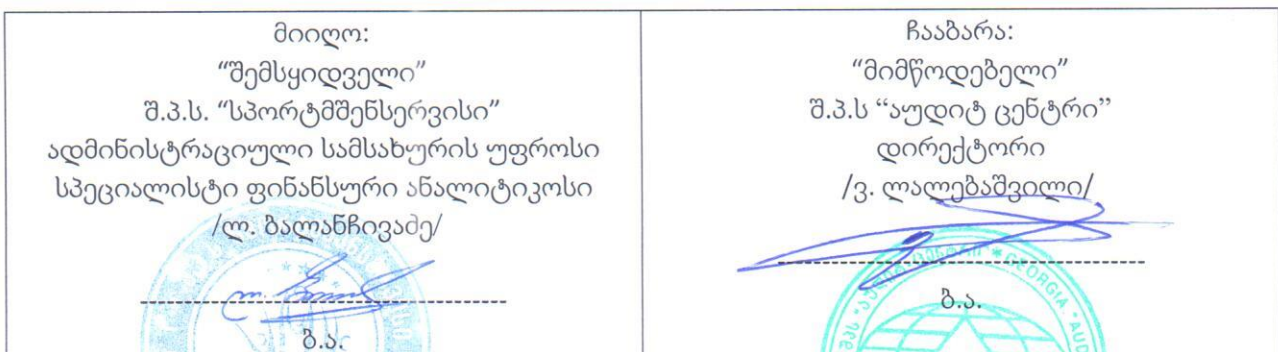 მიიღო:
“შემსყიდველი”
შ.პ.ს. “სპორტმშენსერვისი”
ადმინისტრაციული სამსახურის უფროსი
სპეციალისტი ფინანსური ანალიტიკოსი
/ლ. ბალანჩივაძე/
ბ.ა.
ჩააბარა:
“მიმწოდებელი”
შ.პ.ს “აუდიტ ცენტრი”
დირექტორი
/ვ. ლალებაშვილი/
ბ.ა.
GEORGIA